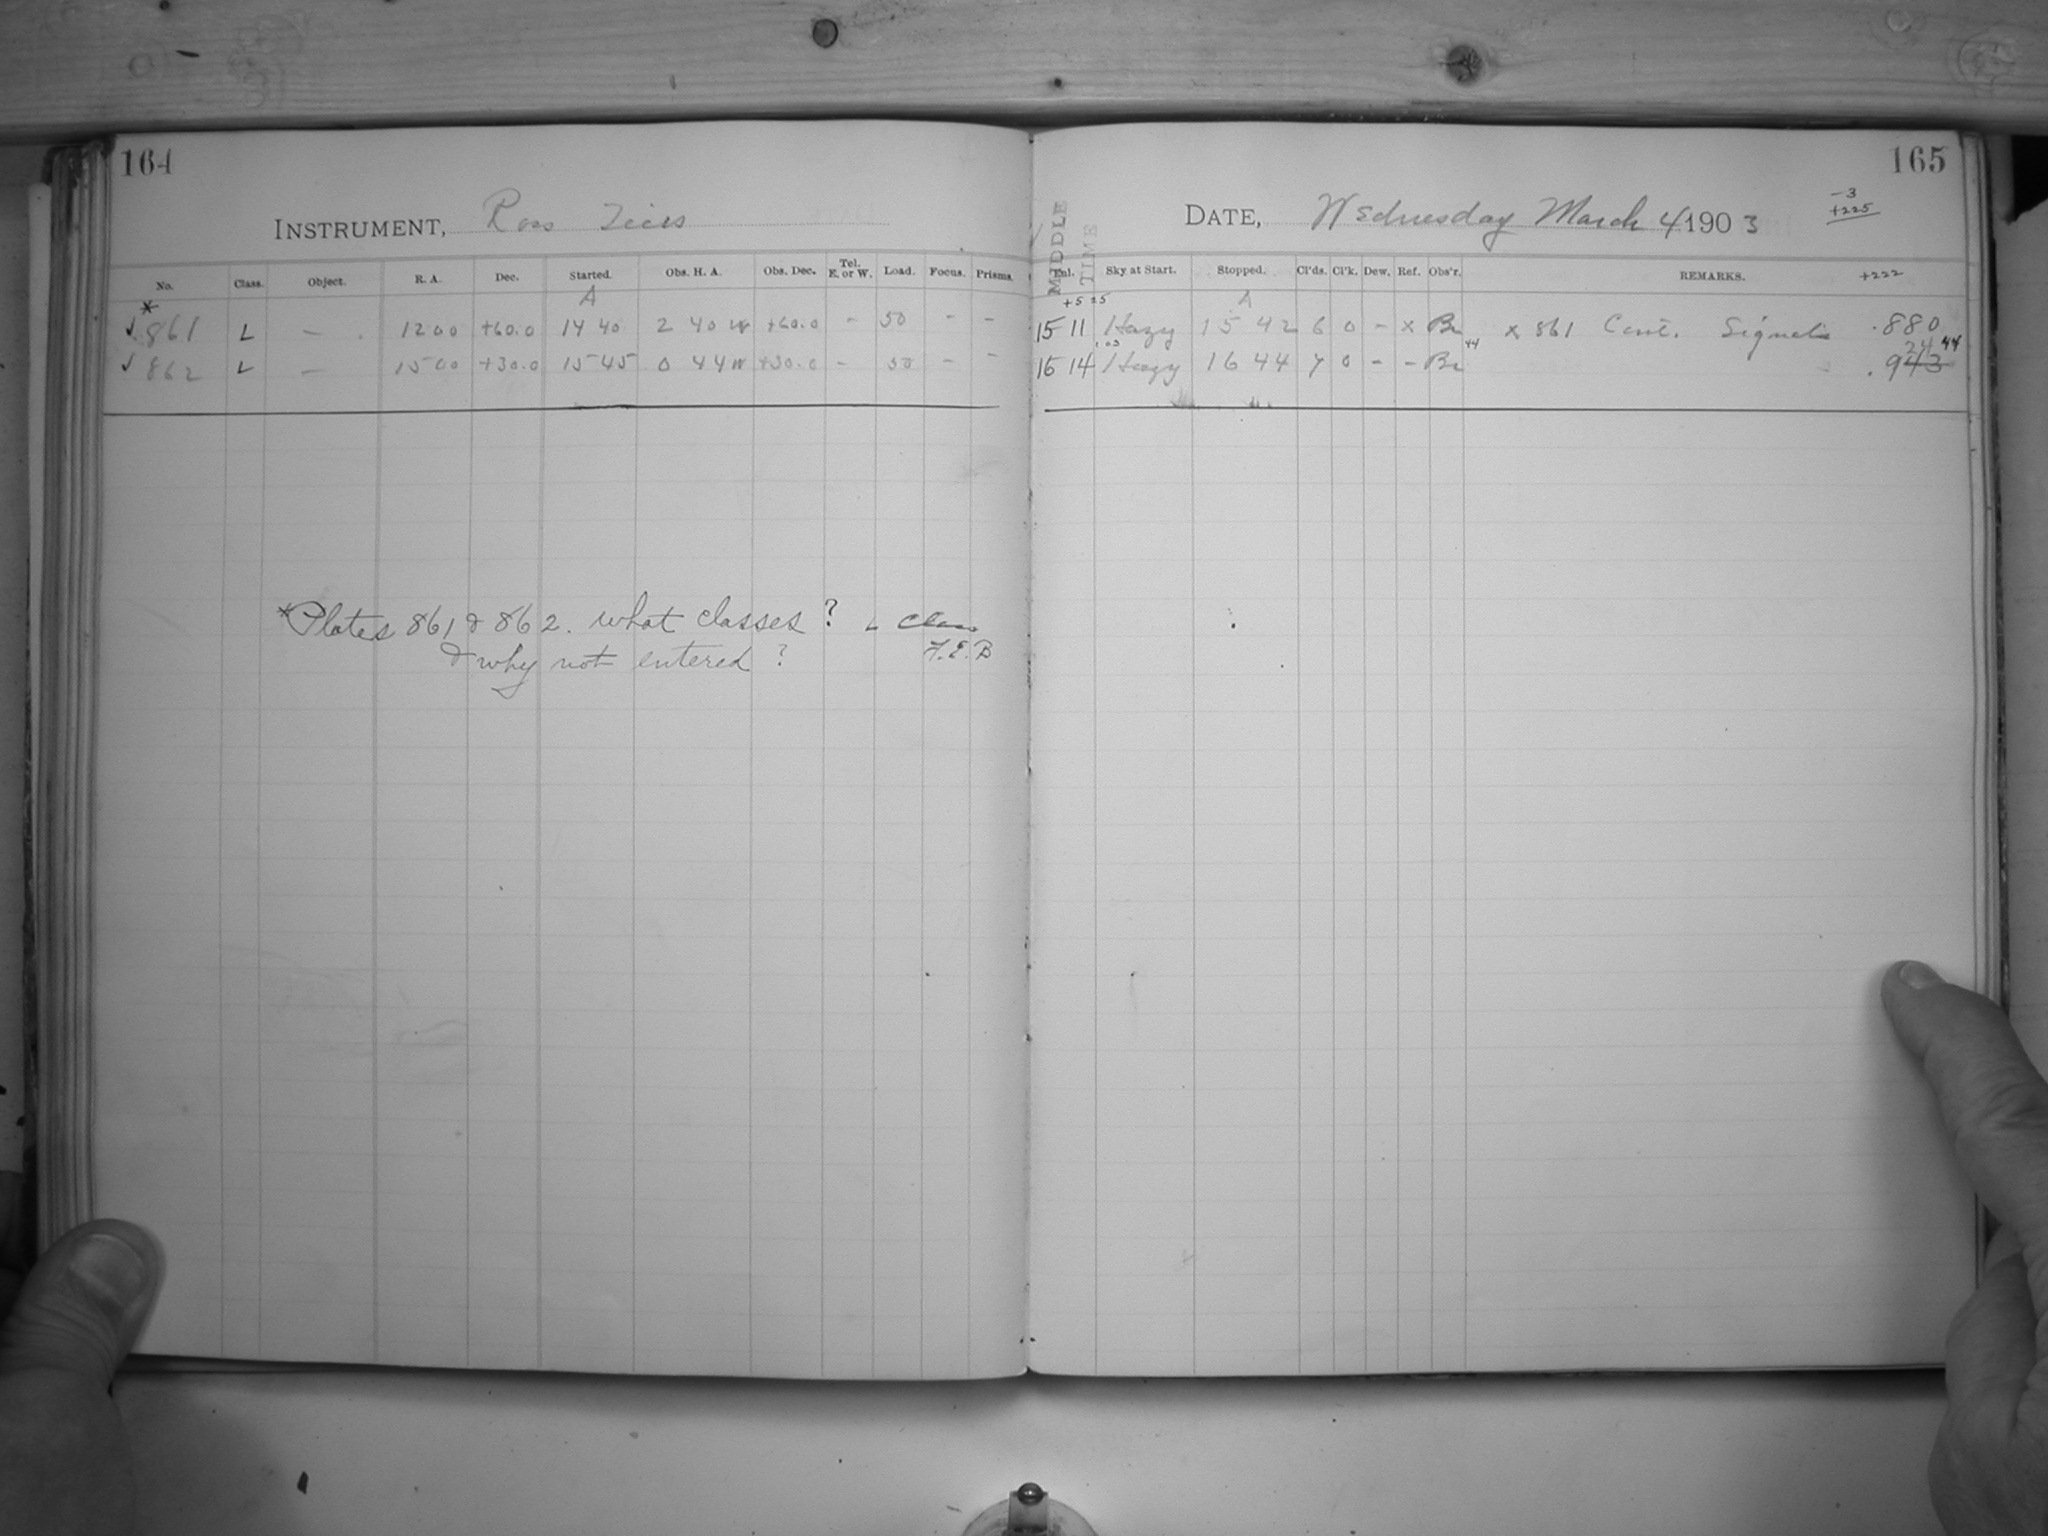 164
INSTRUMENT, Ross
No. Class. Object. R. A. Dec. Started. Obs. H. A. Obs. Dec. Tel. E. or W. Load. Focus. Prisms.
A
*
✓ 861 L — 12 00 +60.0 14 40 2 40 W +60.0 - 50 - -
✓ 862 L — 15 00 +30.0 15 45 0 44 W +30.0 - 50 - -
*Plates 861 & 862. what classes? L Class
& why not entered? F.E.B
165
-3
+225
DATE, Wednesday March 4 1903
MIDDLE TIME
Sky at Start. Stopped. Cl'ds. Cl'k. Dew. Ref. Obs'r. REMARKS. +222
A
15 11 Hazy 15 42 6 0 - x Br x 861 Cont. Signals .880
24 44
16 14 Hazy 16 44 7 0 - - Br .943